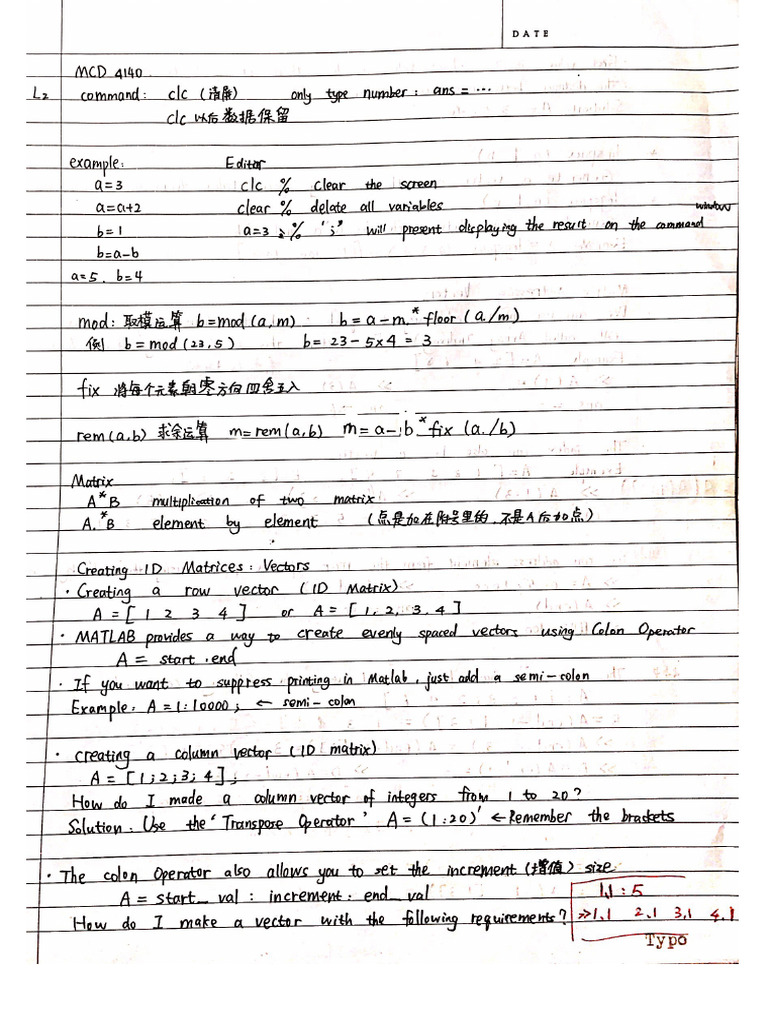 DATE
MCD 4140
L2 command: clc (清屏) only type number: ans = ...
clc 以后数据保留
example: Editor
a=3 clc % clear the screen
a=a+2 clear % delate all variables
window
b=1 a=3 ; % ";" will present displaying the result on the command
b=a-b
a=5. b=4
mod: 取模运算 b=mod(a,m) b=a-m.*floor(a./m)
例 b=mod(23,5) b=23-5×4=3
fix 将每个元素朝零方向四舍五入
rem(a,b) 求余运算 m=rem(a,b) m=a-b.*fix(a./b)
Matrix
A*B multiplication of two matrix
A.*B element by element (点是加在符号里的,不是A后加点)
Creating 1D Matrices: Vectors
· Creating a row vector (1D Matrix)
A=[1 2 3 4] or A=[1,2,3,4]
· MATLAB provides a way to create evenly spaced vectors using Colon Operator
A= start:end
· If you want to suppress printing in Matlab, just add a semi-colon
Example: A=1:10000; ← semi-colon
· creating a column vector (1D matrix)
A=[1;2;3;4];
How do I made a column vector of integers from 1 to 20?
Solution: Use the 'Transpose Operator' A=(1:20)' ← Remember the brackets
· The colon Operator also allows you to set the increment (增值) size
A = start_val : increment : end_val
1.1:5
How do I make a vector with the following requirements? >>1.1 2.1 3.1 4.1
Typo